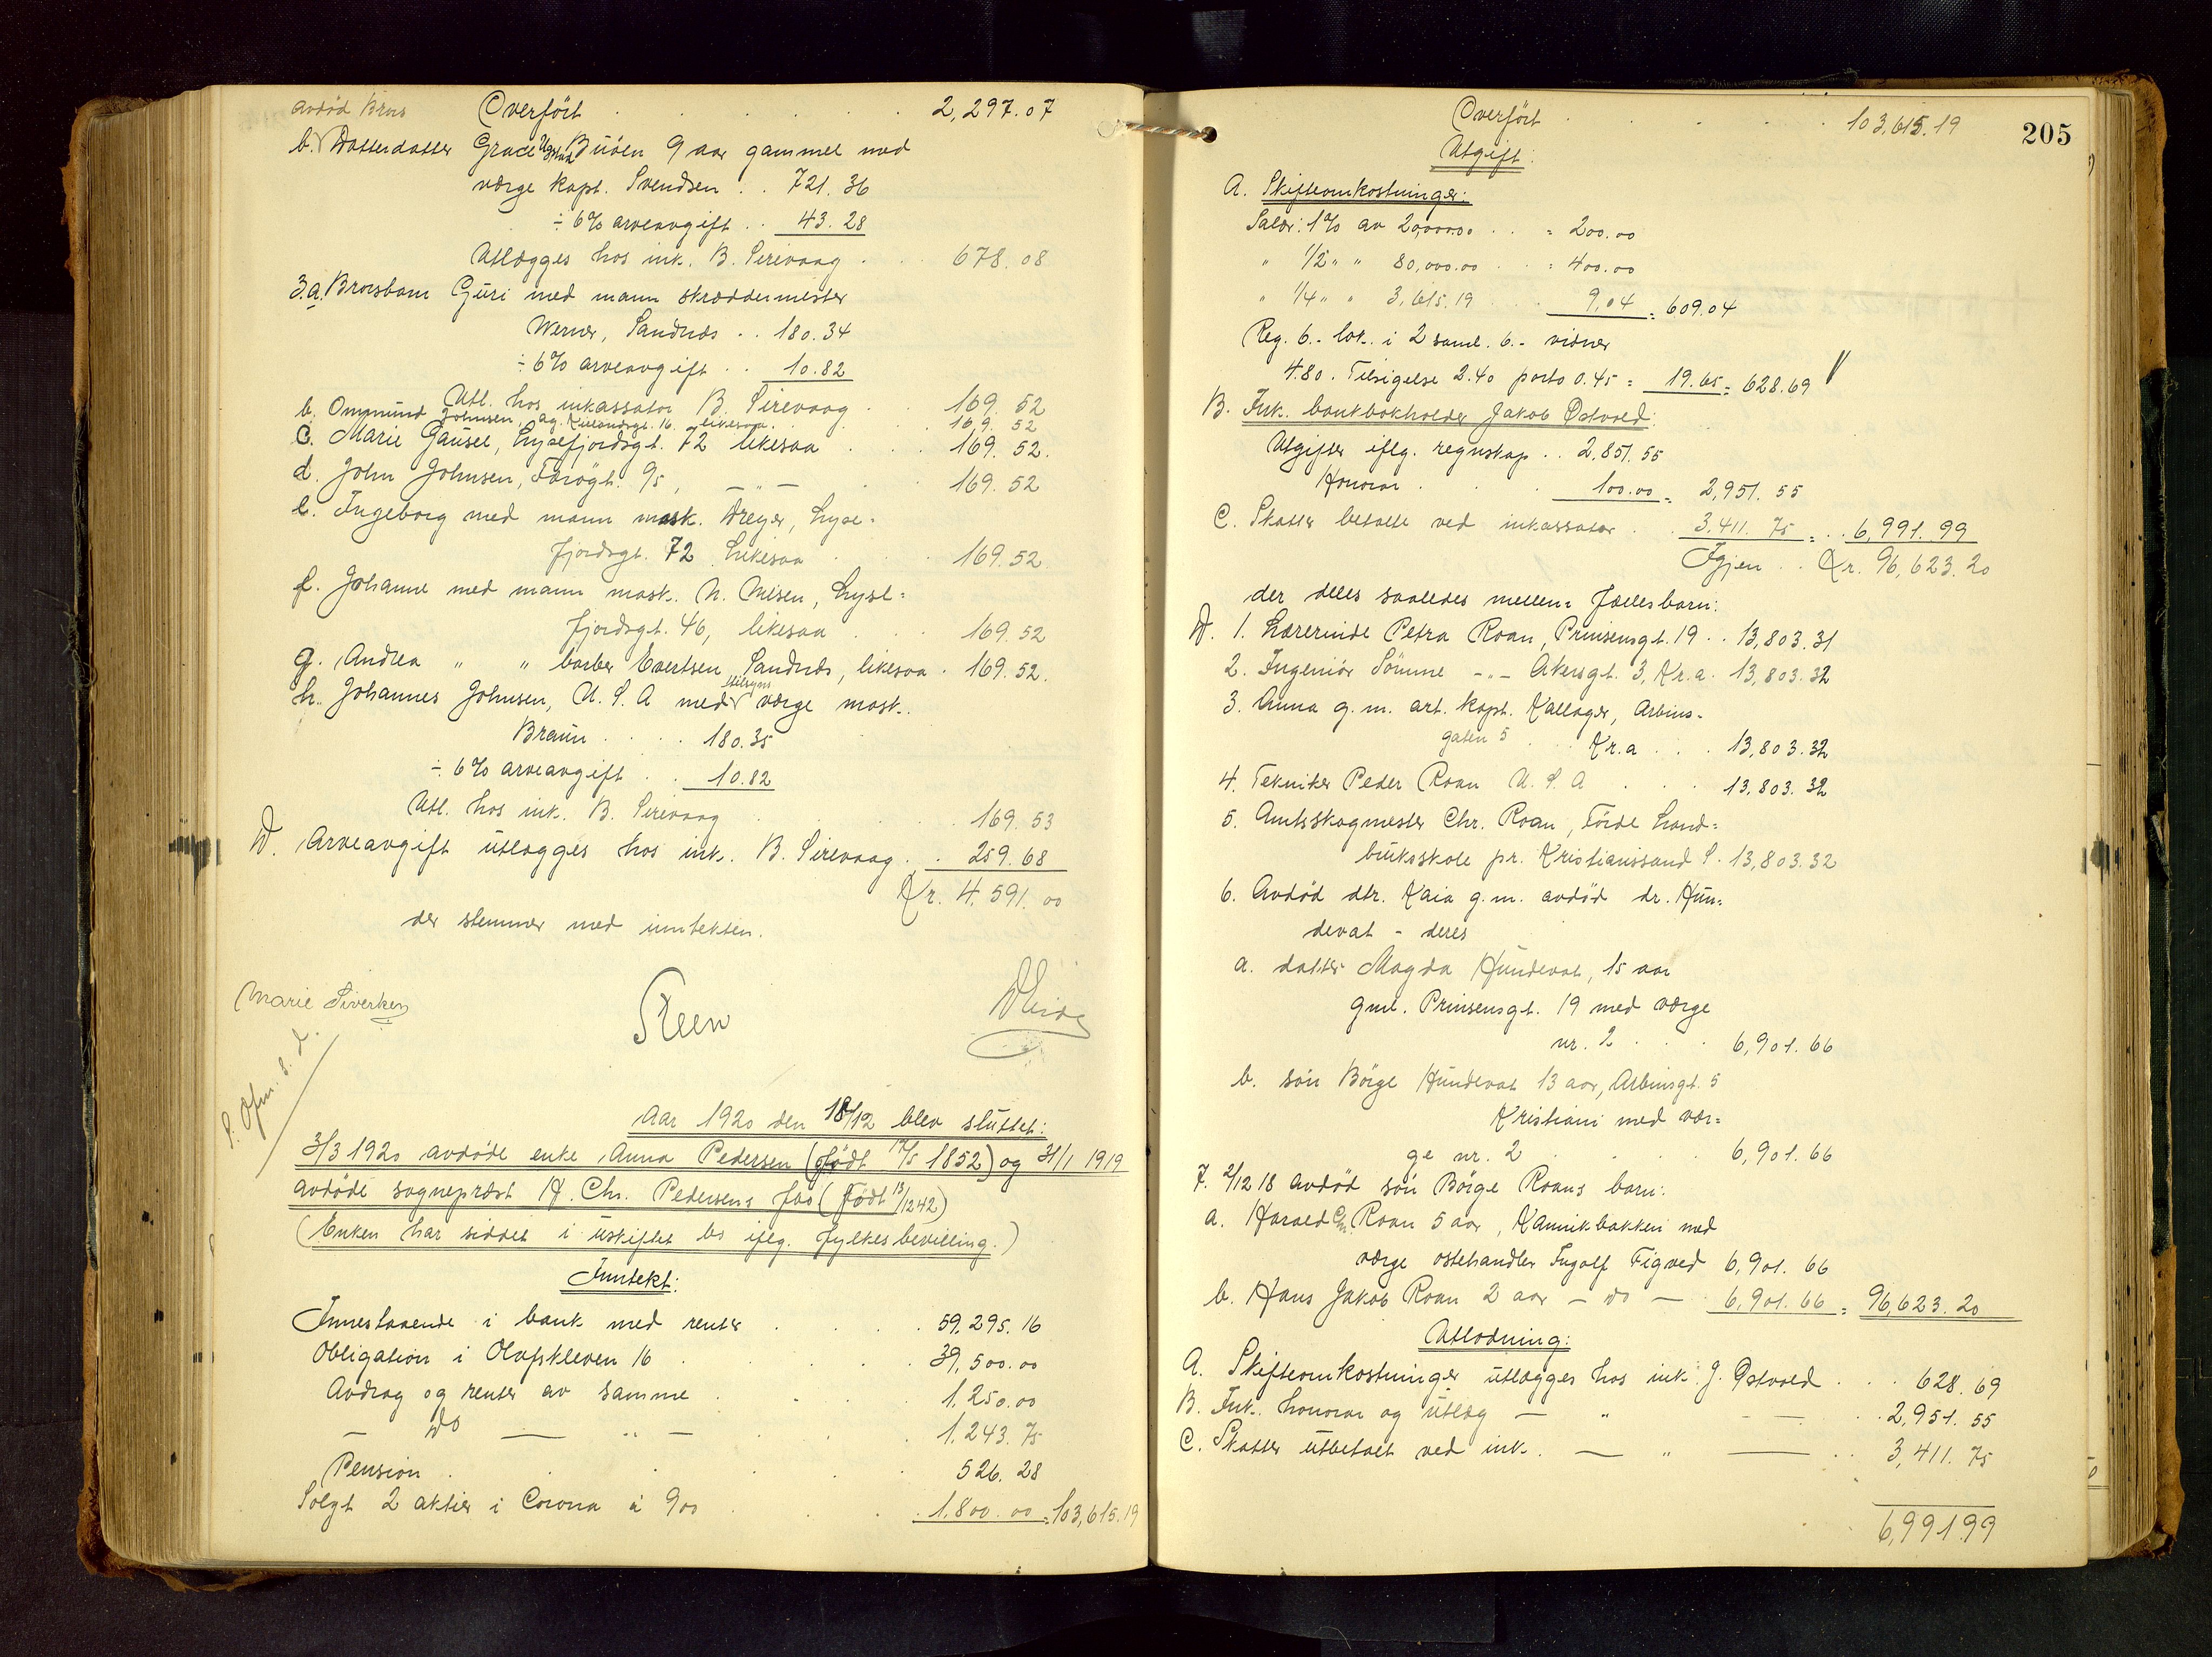 avdød Brors Overført 2,297.07
b. Datterdatter Grace Buøen 9 aar gammel med
værge kapt. Svendsen .. 721.36
÷ 6% arveavgift .. 43.28
Utlægges hos ink. B. Sirevaag 678.08
3.a. Brorsbarn Guri med mann skræddermester
Werner, Sandnæs .. 180.34
÷ 6% arveavgift .. 10.82
Utl. hos inkassator B. Sirevaag 169.52
b. Ommund Johnsen, Ag. Kiellandsgt. 16 likesaa 169.52
c. Marie Gausel, Lysefjordsgt. 72 likesaa 169.52.
d. John Johnsen, Færøgt. 9/5, — " — 169.52
e. Ingeborg med mann mask. Dreyer, Lyse-
fjordsgt. 72 likesaa 169.52.
f. Johanne med mann mask. N. Nilsen, Lyse-
fjordsgt. 46, likesaa 169.52
g. Andrea " " barber Evertsen, Sandnæs, likesaa . 169.52.
h. Johannes Johnsen, U.S.A med værge mask.
Braun 180.35
÷ 6% arveavgift .. 10.82
Utl. hos ink. B. Sirevaag 169.53
D. Arveavgift utlægges hos ink. B. Sirevaag .. 259.68
Kr. 4.591.00
der stemmer med inntekten.
Marie Siverksen
Steen
Aar 1920 den 18/12 blev sluttet:
3/3 1920 avdøde enke Anna Pedersen (født 17/5 1852) og 31/1 1919
avdøde sogneprest H. Chr. Pedersens fbo (født 13/12 42)
(Enken har siddet i uskiftet bo iflg. fylkesbevilling.)
Inntekt:
Innestaaende i bank med renter 59.295.16
Obligation i Olafskleven 16 39,500.00
Avdrag og renter av samme 1,250.00
— Do — " — 1,243.75
Pension 526.28
Solgt 2 aktier i Corona à 900 1,800.00 = 103,615.19
205
Overført 103,615.19
Utgift:
A. Skifteomkostninger:
Salær: 1% av 20,000.00 = 200.00
" 1/2 " " 80,000.00 = 400.00
" 1/4 " " 3,615.19 9,04 = 609.04
Reg. 6.- lok. i 2 saml. 6.- vidner
4.80. Tilsigelse 2.40 porto 0.45 = 19.65 = 628.69
B. Ink. bankbokholder Jakob Østvold:
Utgifter iflg. regnskap .. 2,851.55
Honorar 100.00 = 2,951.55
C. Skatter betalte ved inkassator .. 3,411.75 = .. 6,991.99
Igjen .. Kr. 96,623.20
der deles saaledes mellem fællesbarn:
D. 1. Lærerinde Petra Roan, Prinsensgt. 19 .. 13,803.31
2. Ingeniør Sømme -"- Akersgt. 3, Kr.a. 13,803.32
3. Anna g.m. art. kapt. Kallager, Arbins-
gaten 5 Kr.a 13,803.32
4. Tekniker Peder Roan U.S.A 13,803.32
5. Amtsskogmester Chr. Roan, Førde Land-
bruksskole pr. Kristianssand S. 13,803.32
6. Avdød dtr. Kaia g.m. avdød dr. Hun-
devat - deres
a. datter Magda Hundevat, 15 aar
gml. Prinsensgt. 19 med værge
nr. 2 6,901.66
b. søn Børge Hundevat 13 aar, Arbinsgt. 5
Kristiani med vær-
ge nr. 2 6,901.66
7. 2/12 18 avdød søn Børge Roans barn:
a. Harald Chr. Roan 5 aar, Kannikbakken med
værge ostehandler Ingolf Figved 6,901.66
b. Hans Jakob Roan 2 aar — Do — 6,901.66 = 96,623.20
Utlodning:
A. Skifteomkostninger utlægges hos ink. J. Østvold 628.69
B. Ink. honorar og utlæg — " — 2,951.55
C. Skatter utbetalt ved ink. — " — 3,411.75
6,991.99